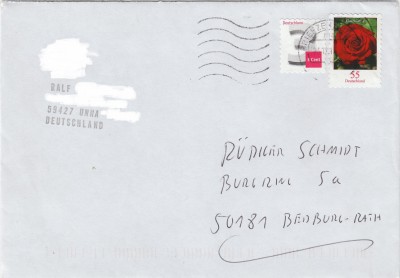 RALF
59427 UNNA
DEUTSCHLAND
Deutschland
3 Cent
55
Deutschland
RÜDIGER SCHMIDT
BURGRING 5a
50181 BEDBURG-RATH